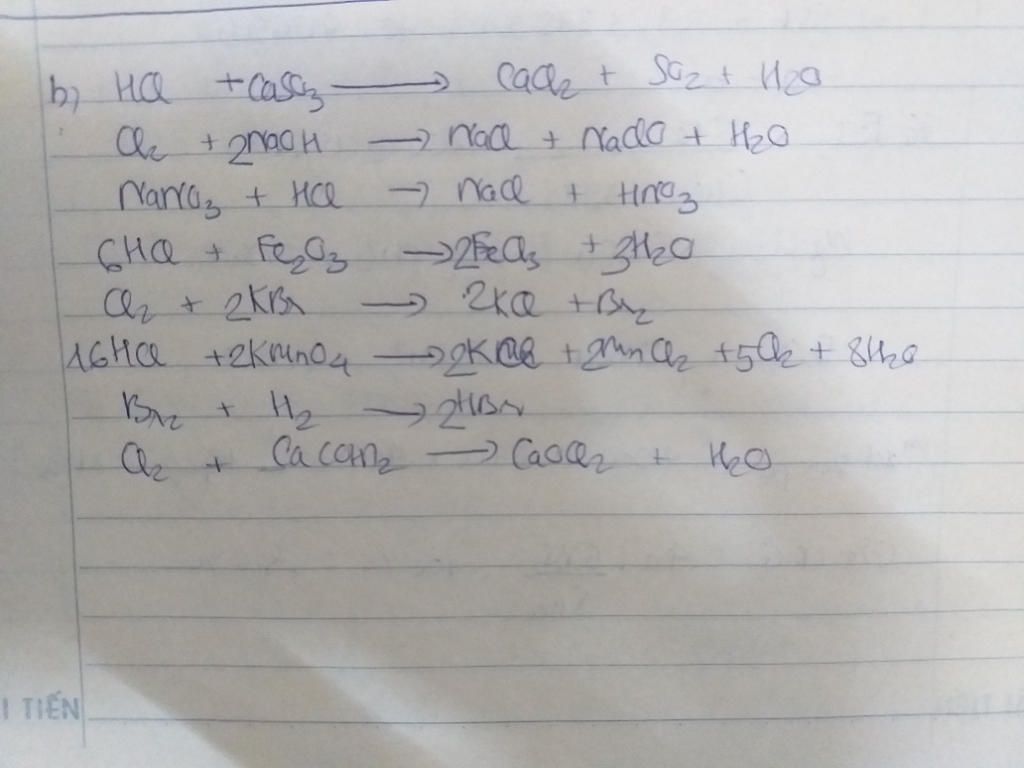 b) HCl + CaSO3 ⟶ CaCl2 + SO2 + H2O
Cl2 + 2NaOH ⟶ NaCl + NaClO + H2O
NaNO3 + HCl ⟶ NaCl + HNO3
6HCl + Fe2O3 ⟶ 2FeCl3 + 3H2O
Cl2 + 2KBr ⟶ 2KCl + Br2
16HCl + 2KMnO4 ⟶ 2KCl + 2MnCl2 + 5Cl2 + 8H2O
Br2 + H2 ⟶ 2HBr
Cl2 + Ca(OH)2 ⟶ CaOCl2 + H2O
I TIẾN